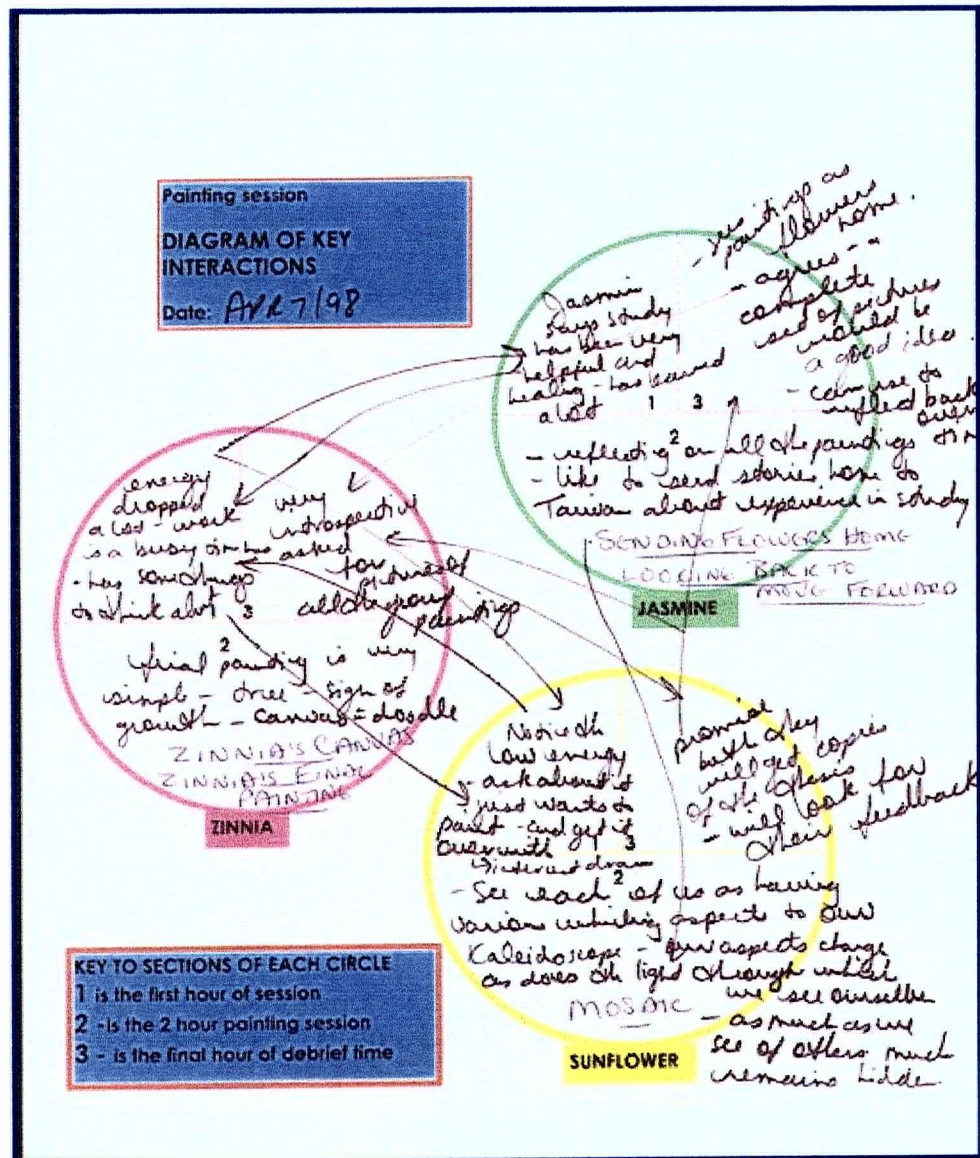 Painting session
DIAGRAM OF KEY
INTERACTIONS
Date: APR 7/98
Jasmin
says study
has been very
helpful and
healing - has learned
alot
1 3
- painting as
flowers
home.
- agrees -
complete
set of pictures
would be
a good idea
- can use to
reflect back
over
time
2
- reflecting on all the paintings
- like to send stories home to
Taiwan about experience in study
SENDING FLOWERS HOME
LOOKING BACK TO
MOVE FORWARD
JASMINE
energy
dropped
a lot - work
is a busy time
- has some things
to think abt
3
very
introspective
has asked
for
pictures of
all the group
paintings
2
final painting is very
simple - tree - sign of
growth - canvas = doodle
ZINNIA'S CANVAS
ZINNIA'S FINAL
PAINTING
ZINNIA
Notice th
low energy
- ask about it
just wants to
paint - and get it
over with
3
promise
both they
will get copies
of the thesis
- will look for
their feedback
2
- See each of us as having
various whirling aspects to our
Kaleidoscope - our aspects change
as does th light through which
we see ourselves
- as much as we
see of others much
remains hidden
MOSAIC
SUNFLOWER
KEY TO SECTIONS OF EACH CIRCLE
1 is the first hour of session
2 - is the 2 hour painting session
3 - is the final hour of debrief time